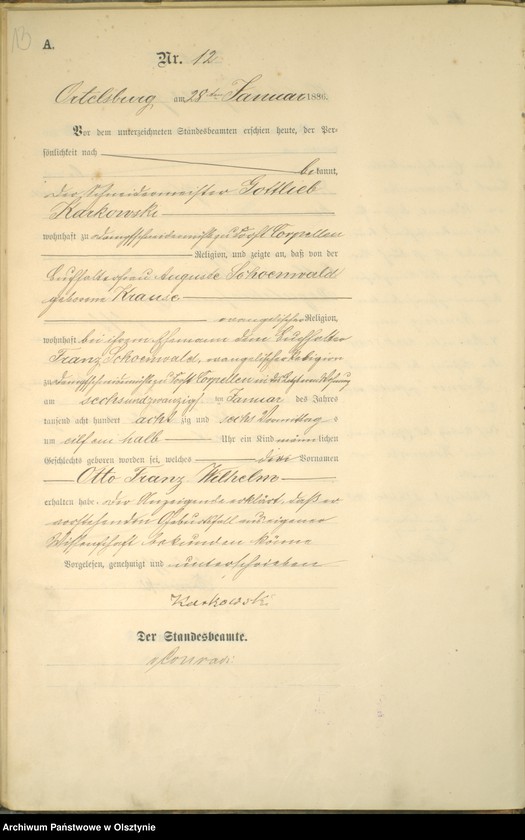 A.
Nr. 12
Ortelsburg am 28ten Januar 1886.
Vor dem unterzeichneten Standesbeamten erschien heute, der Per-
sönlichkeit nach
bekannt,
der Schneidemeister Gottlieb
Karkowski
wohnhaft zu Dampfschneidemühle zu Forst Corpellen
Religion, und zeigte an, daß von der
Buchhalterfrau Auguste Schoenwald
geborene Krause
evangelischer Religion,
wohnhaft bei ihrem Ehemann dem Buchhalter
Franz Schoenwald, evangelischer Religion
zu Dampfschneidemühle zu Forst Corpellen in der
am sechsundzwanzigsten Januar des Jahres
tausend acht hundert achtzig und sechs Vormittags
um elf ein halb Uhr ein Kind männlichen
Geschlechts geboren worden sei, welches die Vornamen
Otto Franz Wilhelm
erhalten habe. Der Anzeigende erklärt, daß er
vorstehenden Geburtsfall aus eigener
Wissenschaft bekunden könne
Vorgelesen, genehmigt und unterschrieben
Karkowski
Der Standesbeamte.
Archiwum Państwowe w Olsztynie